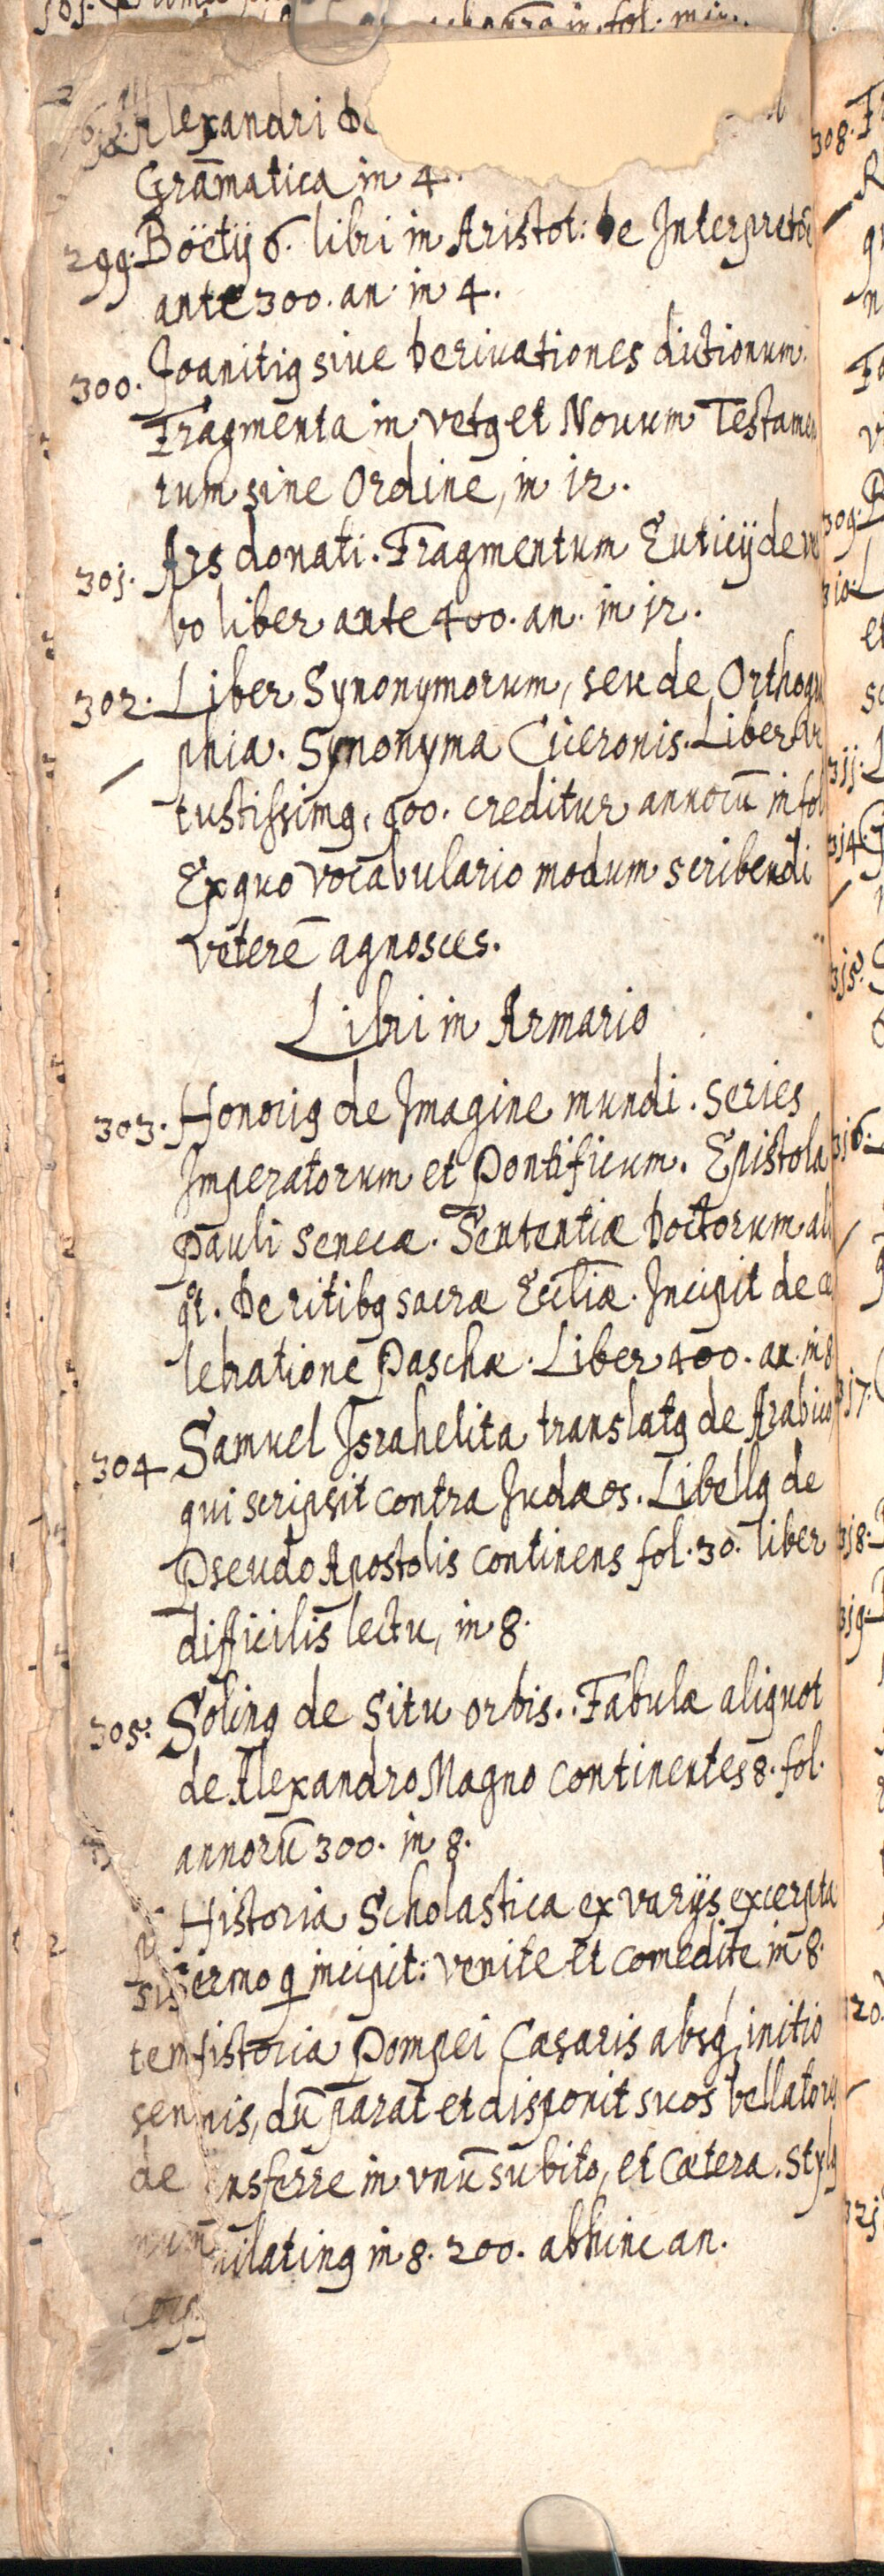 Alexandri de
Gram̄atica in 4.
299. Böetij 6. libri in Aristot: De Interpretōe
ante 300. an in 4.
300. Joanitiꝯ siue Deriuationes dictionum.
Fragmenta in vetꝯ et Nouum Testamen
tum sine Ordine, in 12.
301. Ars donati. Fragmentum Euticij de ver
bo liber ante 400. an. in 12.
302. Liber Synonymorum, seu de Orthogra
phia. Synonyma Ciceronis. Liber ve
tustissimꝯ, 900. creditur annorū in fol
Ex quo vocabulario modum scribendi
veterē agnosces.
Libri in Armario
303. Honoriꝯ de Imagine mundi. Series
Imperatorum et Pontificum. Epistola
Pauli Senecæ. Sententiæ Doctorum ali
qt. De ritibꝯ sacræ Eccliæ. Incipit de ce
lebratione Paschæ. Liber 400. an. in 8
304 Samuel Israhelita translatꝯ de Arabico
qui scripsit contra Judæos. Libellꝯ de
Pseudo Apostolis continens fol. 30. liber
difficilis lectu, in 8.
305. Solinꝯ de Situ orbis. Fabulæ aliquot
de Alexandro Magno continentes 8. fol.
annorū 300. in 8.
Historia Scholastica ex varijs excerpta
sermo q incipit: venite et comedite in 8.
Historia Pompei Cæsaris absqꝫ initio
nis, dū parat et disponit suos bellatores
nsferre in vnū subito, et cætera. Stylꝯ
latinꝯ in 8. 200. abhinc an.